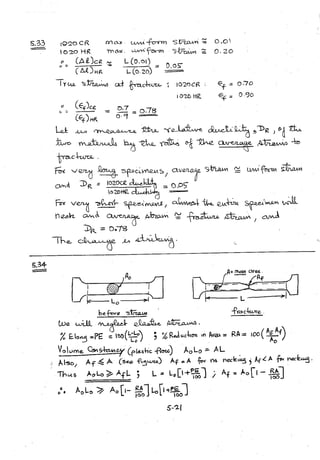 5.33 1020 CR max uniform strain ≅ 0.01
1020 HR max. uniform strain ≅ 0.20
∴ (Δℓ)CR / (Δℓ)HR ≅ L(0.01) / L(0.20) = 0.05
True strains at fracture ; 1020CR : εf = 0.70
1020 HR εf = 0.90
∴ (εf)CR / (εf)HR = 0.7 / 0.9 = 0.78
Let us measure the relative ductility, DR, of the
two materials by the ratio of the average strains to
fracture.
For very long specimens, average strain ≅ uniform strain
and DR = 1020CR ductility / 1020HR ductility = 0.05
For very short specimens, almost the entire specimen will
neck and average strain ≅ fracture strain, and
DR = 0.78
The change is striking.
5.34
A0 A = mean area Af
L0 L
before strain fracture
We will neglect elastic strains.
% Elong = PE = 100 (L-L0 / L0) ; % Reduction in Area = RA = 100 (A0-Af / A0)
Volume Constancy (plastic flow) A0L0 = AL
Also, Af ≤ A (see figure) Af = A for no necking; Af < A for necking.
Thus A0L0 ≥ AfL ; L = L0[1+PE/100] ; Af = A0[1 - RA/100]
∴ A0L0 ≥ A0[1- RA/100] L0[1+PE/100]
5-21